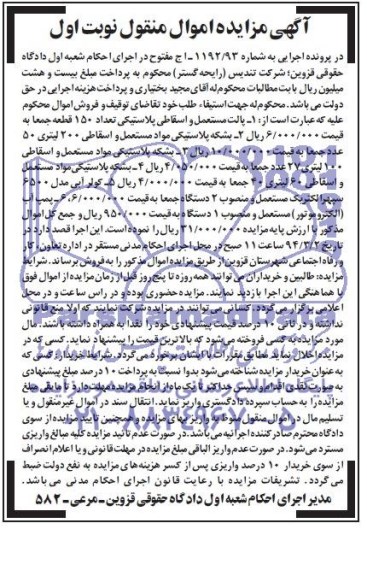 آگهی مزایده اموال منقول نوبت اول
در پرونده اجرایی به شماره ۱۱۹۲/۹۳ـ ا ج مفتوح در اجرای احکام شعبه اول دادگاه
حقوقی قزوین؛ شرکت تندیس (رایحه گستر) محکوم به پرداخت مبلغ بیست و هشت
میلیون ریال بابت مطالبات محکوم‌له آقای مجید بختیاری و پرداخت هزینه اجرایی در حق
دولت می باشد. محکوم‌له جهت استیفاء طلب خود تقاضای توقیف و فروش اموال محکوم
علیه که عبارت است از: ۱ـ پالت مستعمل و اسقاطی پلاستیکی تعداد ۱۵۰ قطعه جمعا به
قیمت ۶/۰۰۰/۰۰۰ ریال ۲ـ بشکه پلاستیکی مواد مستعمل و اسقاطی ۲۰۰ لیتری ۵۰
عدد جمعا به قیمت ۱۰/۰۰۰/۰۰۰ ریال ۳ـ بشکه پلاستیکی مواد مستعمل و اسقاطی
۱۰۰ لیتری ۲۷ عدد جمعا به قیمت ۴/۰۵۰/۰۰۰ ریال ۴ـ بشکه پلاستیکی مواد مستعمل
و اسقاطی ۶۰ لیتری ۴۰ جمعا به قیمت ۴/۰۰۰/۰۰۰ ریال ۵ـ کولر آبی مدل ۶۵۰۰
سپهرالکتریک مستعمل و منصوب ۲ دستگاه جمعا به قیمت ۶/۰۰۰/۰۰۰ ۶ـ پمپ آب
(الکتروموتور) مستعمل و منصوب ۱ دستگاه به قیمت ۹۵۰/۰۰۰ ریال و جمع کل اموال
مذکور با ارزش پایه مزایده ۳۱/۰۰۰/۰۰۰ ریال را نموده است. این اجرا قصد دارد در
تاریخ ۹۴/۳/۲ ساعت ۱۱ صبح در محل اجرای احکام مدنی مستقر در اداره تعاون، کار
و رفاه اجتماعی شهرستان قزوین از طریق مزایده اموال مذکور را به فروش برساند. شرایط
مزایده: طالبین و خریداران می توانند همه روزه تا پنج روز قبل از زمان مزایده از اموال فوق
با هماهنگی این اجرا بازدید نمایند. مزایده حضوری بوده و در راس ساعت و در محل
اعلامی برگزار می گردد. کسانی می‌توانند در مزایده شرکت نمایند که اولا منع قانونی
نداشته و در ثانی ۱۰ درصد قیمت پیشنهادی خود را نقدا به همراه داشته باشند. مال
مورد مزایده به کسی فروخته می‌شود که بالاترین قیمت را پیشنهاد نماید. کسی که در
مزایده اخلال نماید مطابق مقررات با ایشان برخورد می گردد. شرایط خریدار: کسی که
به عنوان خریدار مزایده شناخته می‌شود بدوا نسبت به پرداخت ۱۰ درصد مبلغ پیشنهادی
به صورت نقدی اقدام و سپس حداکثر تا یک ماه از انجام مزایده مهلت دارد تا مابقی مبلغ
مزایده را به حساب سپرده دادگستری واریز نماید. انتقال سند در اموال غیرمنقول و یا
تسلیم مال در اموال منقول منوط به واریز بهای مزایده و همچنین تایید مزایده از سوی
دادگاه محترم صادرکننده اجرائیه می باشد. در صورت عدم تائید مزایده کلیه مبالغ واریزی
مسترد می‌شود. در صورت عدم واریز الباقی مبلغ مزایده در مهلت قانونی و یا اعلام انصراف
از سوی خریدار ۱۰ درصد واریزی پس از کسر هزینه های مزایده به نفع دولت ضبط
می گردد. تشریفات مزایده با رعایت قانون اجرای احکام مدنی می باشد.
مدیر اجرای احکام شعبه اول دادگاه حقوقی قزوین ـ مرعی ـ ۵۸۲